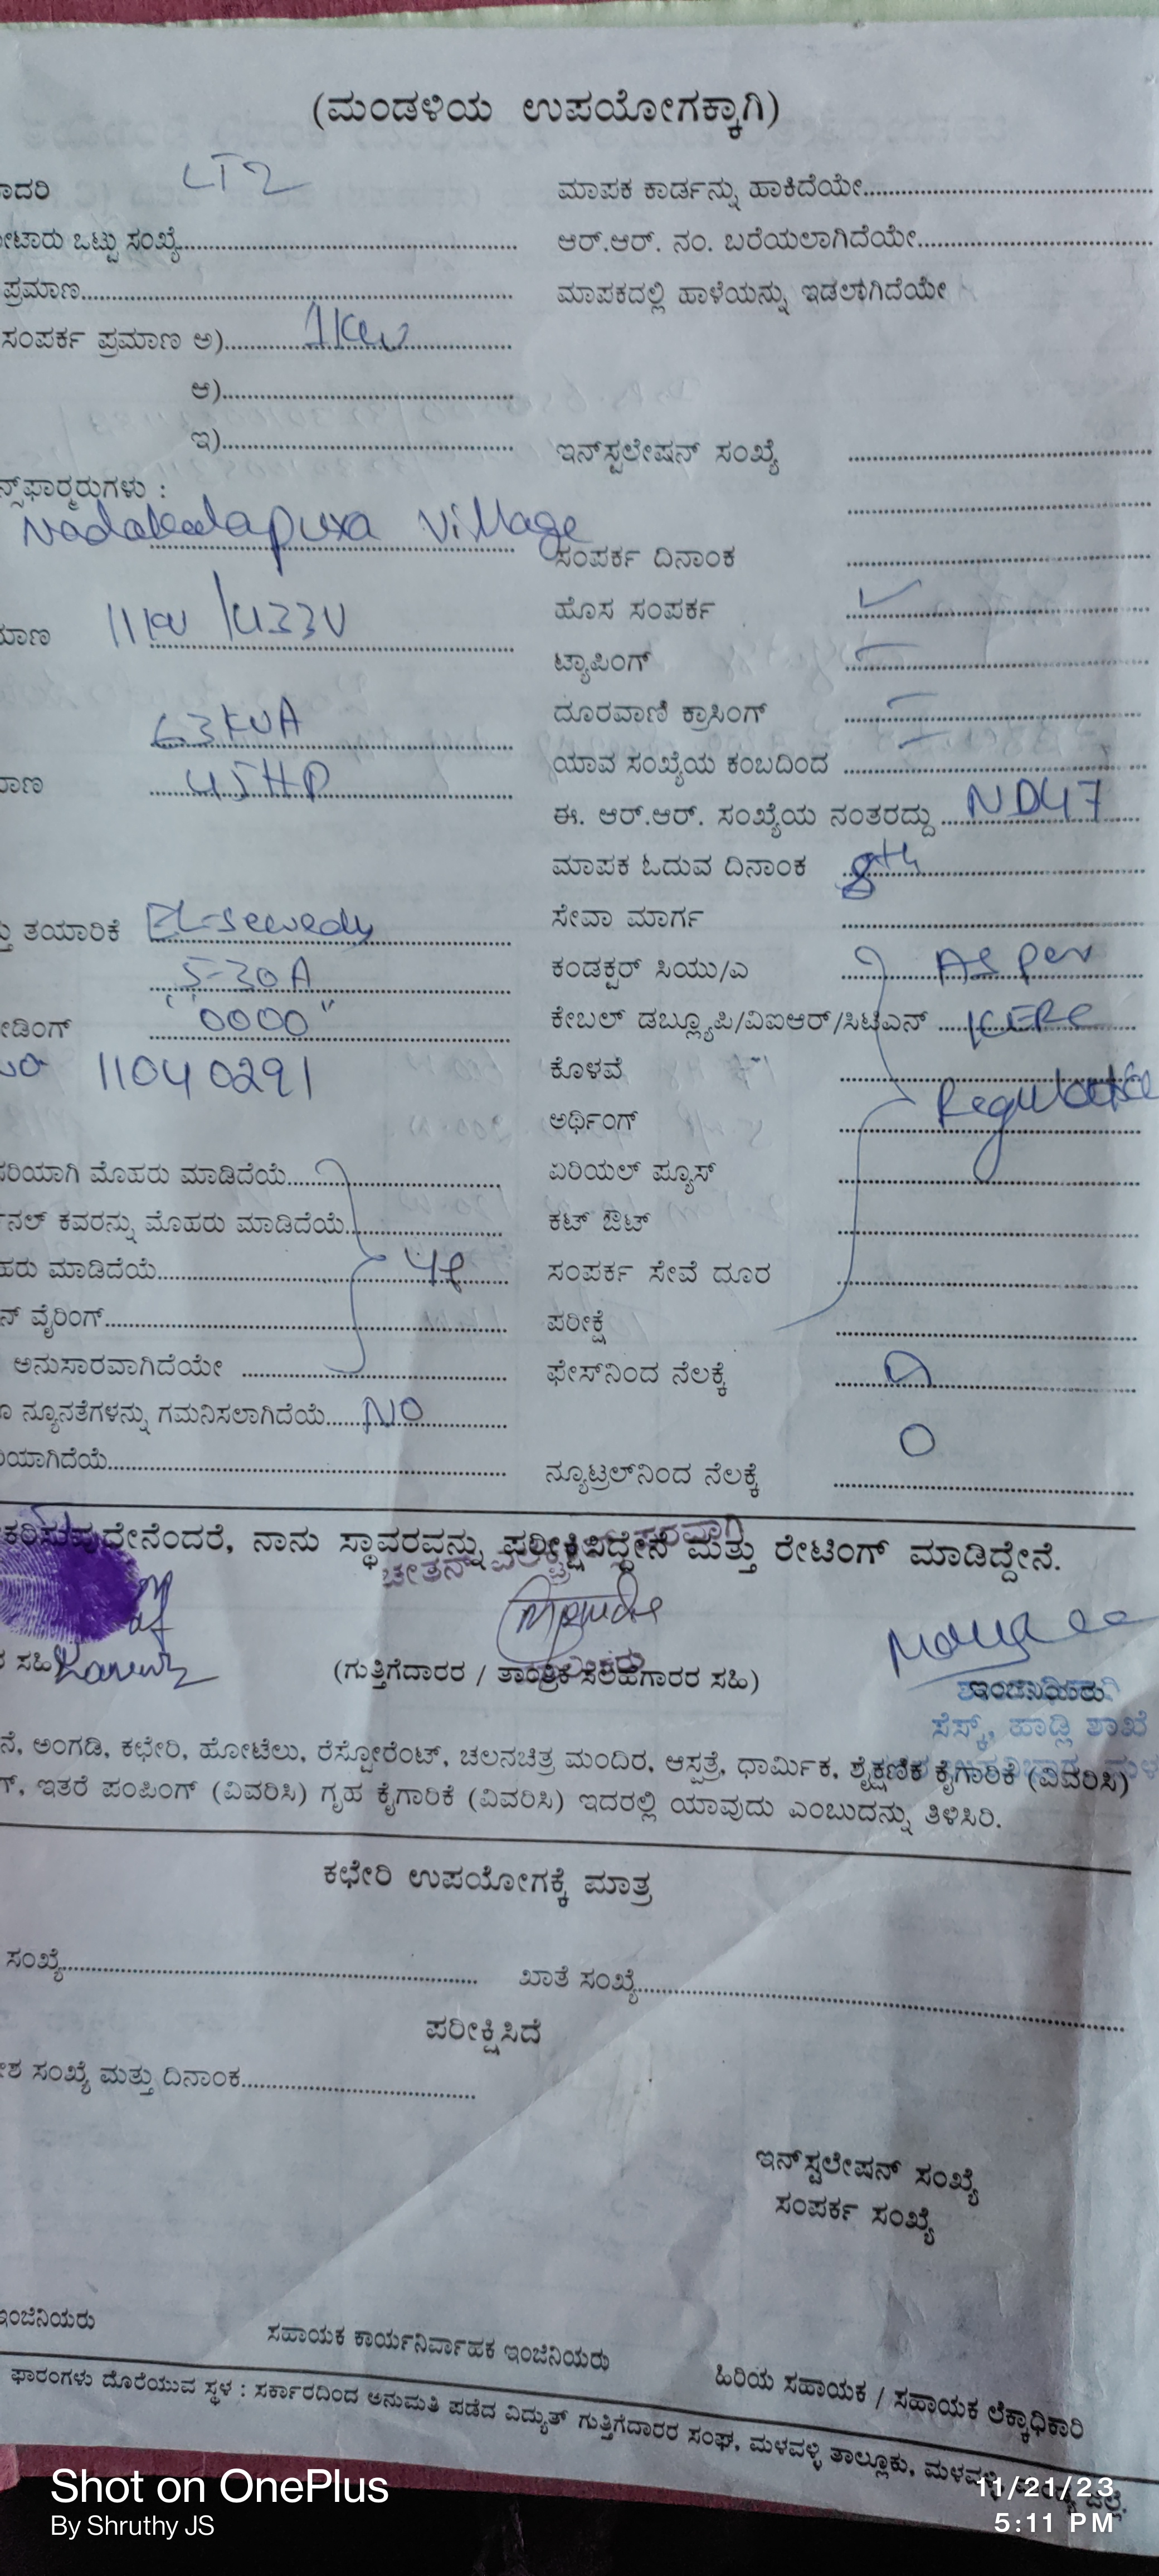 (ಮಂಡಳಿಯ ಉಪಯೋಗಕ್ಕಾಗಿ)
ಾದರಿ LT2 ಮಾಪಕ ಕಾರ್ಡನ್ನು ಹಾಕಿದೆಯೇ
ೀಟಾರು ಒಟ್ಟು ಸಂಖ್ಯೆ ಆರ್.ಆರ್. ನಂ. ಬರೆಯಲಾಗಿದೆಯೇ
ಪ್ರಮಾಣ ಮಾಪಕದಲ್ಲಿ ಹಾಳೆಯನ್ನು ಇಡಲಾಗಿದೆಯೇ
ಸಂಪರ್ಕ ಪ್ರಮಾಣ ಅ) 1kw
ಆ)
ಇ) ಇನ್‌ಸ್ಟಲೇಷನ್ ಸಂಖ್ಯೆ
ನ್ಸ್‌ಫಾರ್ಮರುಗಳು :
Nadakalapura Village ಸಂಪರ್ಕ ದಿನಾಂಕ
ಹೊಸ ಸಂಪರ್ಕ ✓
ಮಾಣ 11kv /433V
ಟ್ಯಾಪಿಂಗ್ –
63KVA ದೂರವಾಣಿ ಕ್ರಾಸಿಂಗ್ –
ಮಾಣ 45HP ಯಾವ ಸಂಖ್ಯೆಯ ಕಂಬದಿಂದ –
ಈ. ಆರ್.ಆರ್. ಸಂಖ್ಯೆಯ ನಂತರದ್ದು ND47
ಮಾಪಕ ಓದುವ ದಿನಾಂಕ 8th
ತು ತಯಾರಿಕೆ EL-sewedy ಸೇವಾ ಮಾರ್ಗ
5-30A ಕಂಡಕ್ಟರ್ ಸಿಯು/ಎ As per
ೀಡಿಂಗ್ "0000" ಕೇಬಲ್ ಡಬ್ಲ್ಯೂಪಿ/ವಿಐಆರ್/ಸಿಟಿಎನ್ KERC
No 11040291 ಕೊಳವೆ Regulation
ಅರ್ಥಿಂಗ್
ಸರಿಯಾಗಿ ಮೊಹರು ಮಾಡಿದೆಯೆ ಏರಿಯಲ್ ಫ್ಯೂಸ್
ನಲ್ ಕವರನ್ನು ಮೊಹರು ಮಾಡಿದೆಯೆ ಕಟ್ ಔಟ್
ಹರು ಮಾಡಿದೆಯೆ ಸಂಪರ್ಕ ಸೇವೆ ದೂರ
ನ್ ವೈರಿಂಗ್ ಪರೀಕ್ಷೆ
ಅನುಸಾರವಾಗಿದೆಯೇ ಫೇಸ್‌ನಿಂದ ನೆಲಕ್ಕೆ
ನ್ಯೂನತೆಗಳನ್ನು ಗಮನಿಸಲಾಗಿದೆಯೆ NO
ಿಯಾಗಿದೆಯೆ ನ್ಯೂಟ್ರಲ್‌ನಿಂದ ನೆಲಕ್ಕೆ 0
ಕರಿಸುವುದೇನೆಂದರೆ, ನಾನು ಸ್ಥಾವರವನ್ನು ಪರೀಕ್ಷಿಸಿದ್ದೇನೆ ಮತ್ತು ರೇಟಿಂಗ್ ಮಾಡಿದ್ದೇನೆ.
ಚೇತನ್
ರ ಸಹಿ (ಗುತ್ತಿಗೆದಾರರ / ತಾಂತ್ರಿಕ ಸಲಹೆಗಾರರ ಸಹಿ) ಇಂಜಿನಿಯರು
ಸೆಸ್ಕ್, ಹಾಡ್ಲಿ ಶಾಖೆ
ನೆ, ಅಂಗಡಿ, ಕಛೇರಿ, ಹೋಟೆಲು, ರೆಸ್ಟೋರೆಂಟ್, ಚಲನಚಿತ್ರ ಮಂದಿರ, ಆಸ್ಪತ್ರೆ, ಧಾರ್ಮಿಕ, ಶೈಕ್ಷಣಿಕ ಕೈಗಾರಿಕೆ (ವಿವರಿಸಿ)
ಗ್, ಇತರೆ ಪಂಪಿಂಗ್ (ವಿವರಿಸಿ) ಗೃಹ ಕೈಗಾರಿಕೆ (ವಿವರಿಸಿ) ಇದರಲ್ಲಿ ಯಾವುದು ಎಂಬುದನ್ನು ತಿಳಿಸಿರಿ.
ಕಛೇರಿ ಉಪಯೋಗಕ್ಕೆ ಮಾತ್ರ
ಸಂಖ್ಯೆ ಖಾತೆ ಸಂಖ್ಯೆ
ಪರೀಕ್ಷಿಸಿದೆ
ೇಶ ಸಂಖ್ಯೆ ಮತ್ತು ದಿನಾಂಕ
ಇನ್‌ಸ್ಟಲೇಷನ್ ಸಂಖ್ಯೆ
ಸಂಪರ್ಕ ಸಂಖ್ಯೆ
ಇಂಜಿನಿಯರು ಸಹಾಯಕ ಕಾರ್ಯನಿರ್ವಾಹಕ ಇಂಜಿನಿಯರು ಹಿರಿಯ ಸಹಾಯಕ / ಸಹಾಯಕ ಲೆಕ್ಕಾಧಿಕಾರಿ
ಫಾರಂಗಳು ದೊರೆಯುವ ಸ್ಥಳ : ಸರ್ಕಾರದಿಂದ ಅನುಮತಿ ಪಡೆದ ವಿದ್ಯುತ್ ಗುತ್ತಿಗೆದಾರರ ಸಂಘ, ಮಳವಳ್ಳಿ ತಾಲ್ಲೂಕು, ಮಳವಳ್ಳಿ, ಜಿಲ್ಲೆ.
Shot on OnePlus
By Shruthy JS
11/21/23
5:11 PM